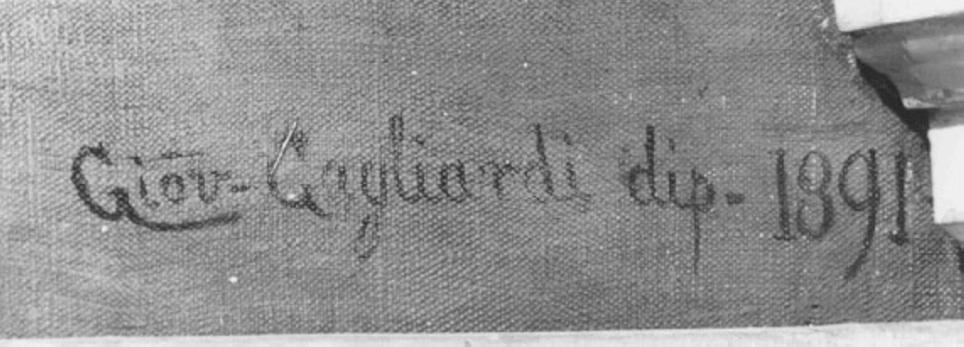 Giov- Gagliardi dip- 1891